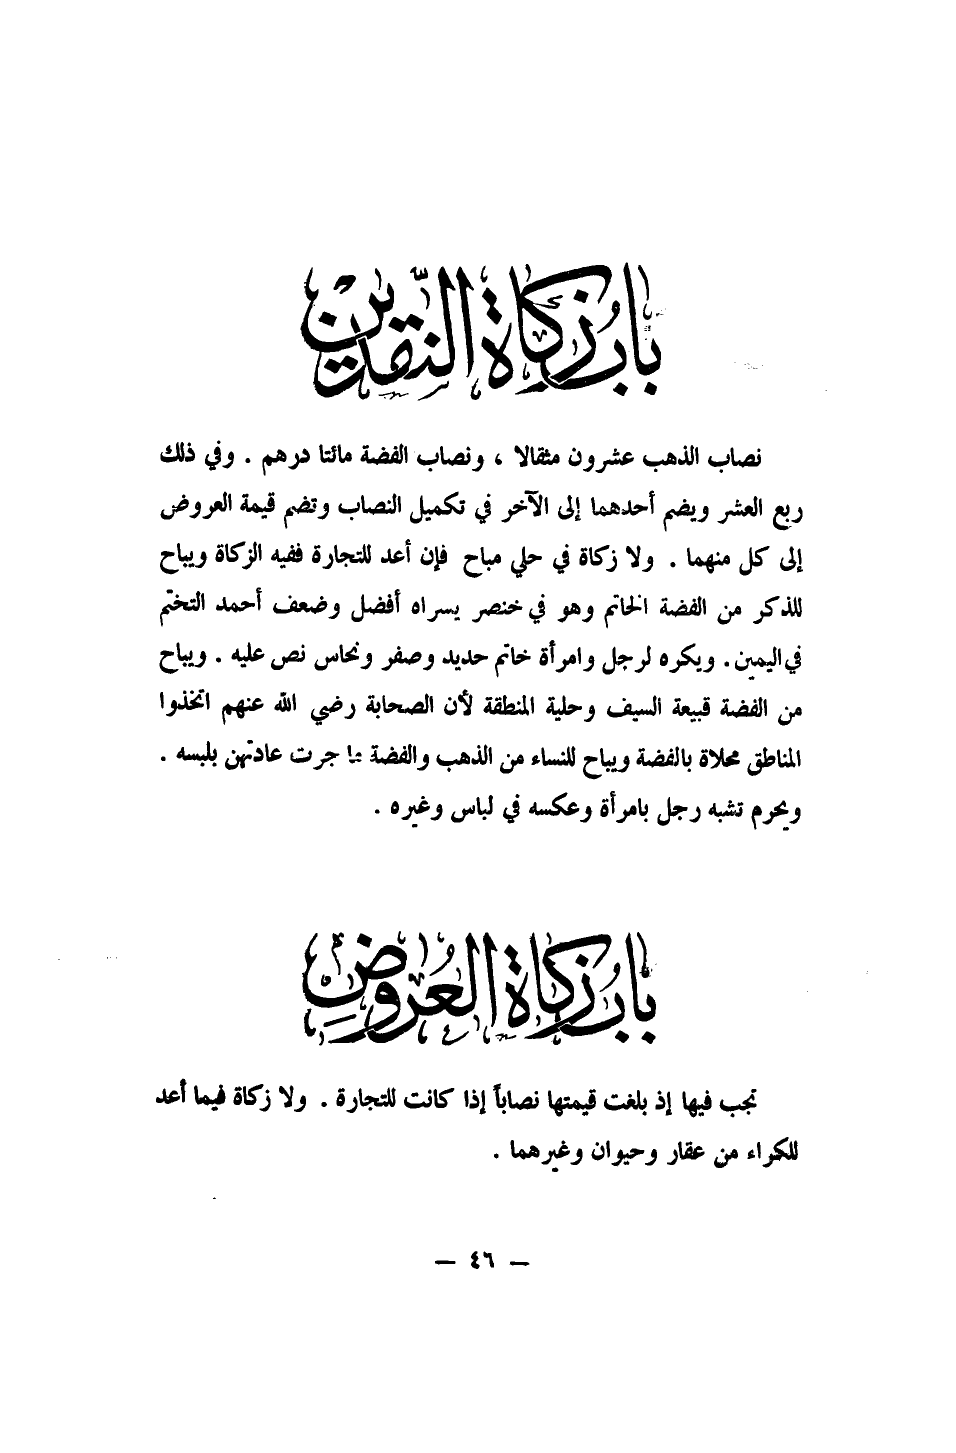 باب زكاة النقدين
نصاب الذهب عشرون مثقالا ، ونصاب الفضة مائتا درهم . وفي ذلك
ربع العشر ويضم أحدهما إلى الآخر في تكميل النصاب وتضم قيمة العروض
إلى كل منهما . ولا زكاة في حلي مباح فإن أعد للتجارة ففيه الزكاة ويباح
للذكر من الفضة الخاتم وهو في خنصر يسراه أفضل وضعف أحمد التختم
في اليمين . ويكره لرجل وامرأة خاتم حديد وصفر ونحاس نص عليه . ويباح
من الفضة قبيعة السيف وحلية المنطقة لأن الصحابة رضي الله عنهم اتخذوا
المناطق محلاة بالفضة ويباح للنساء من الذهب والفضة ما جرت عادتهن بلبسه .
ويحرم تشبه رجل بامرأة وعكسه في لباس وغيره .
باب زكاة العُروضِ
تجب فيها إذ بلغت قيمتها نصاباً إذا كانت للتجارة . ولا زكاة فيما أعد
للكراء من عقار وحيوان وغيرهما .
— ٤٦ —